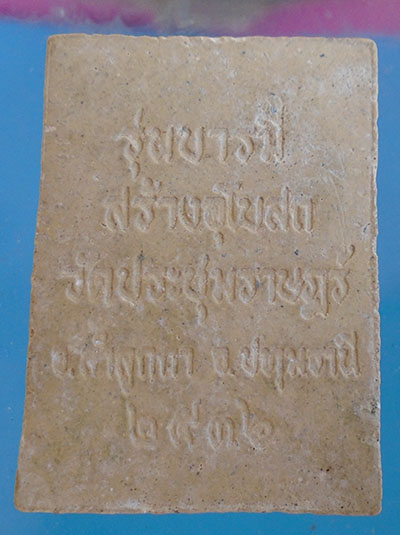 รุ่นบารมี
สร้างอุโบสถ
วัดประชุมราษฎร์
อ.ลำลูกกา จ.ปทุมธานี
๒๕๓๖